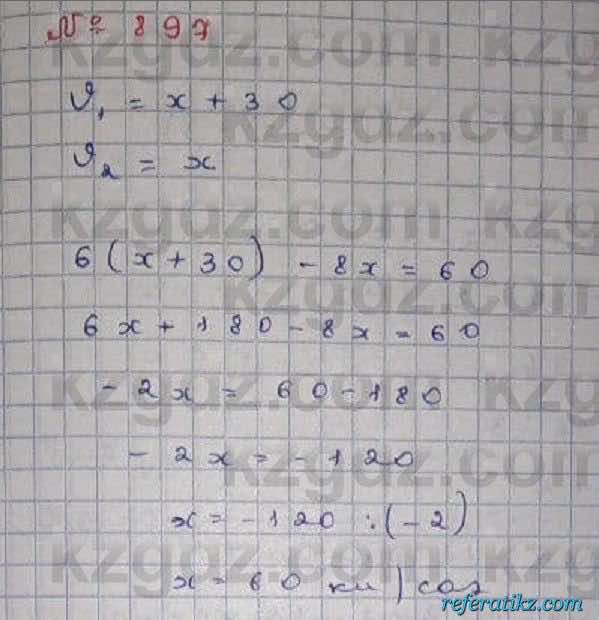 № 897
kzgdz.com
ϑ₁ = x + 30
kzgdz.com
ϑ₂ = x
kzgdz.com
6(x + 30) - 8x = 60
kzgdz.com
6x + 180 - 8x = 60
kzgdz.com
- 2x = 60 - 180
- 2x = - 120
kzgdz.com
x = - 120 : (- 2)
kzgdz.com
x = 60 км/сағ
referatikz.com